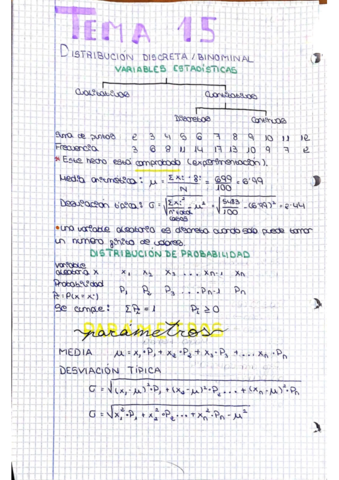 TEMA 15
DISTRIBUCIÓN DISCRETA / BINOMINAL
VARIABLES ESTADÍSTICAS
Cualitativas Cuantitativas
Discretas Continuas
Suma de puntos 2 3 4 5 6 7 8 9 10 11 12
Frecuencia 3 8 8 11 14 17 13 10 9 7 2
* Este hecho está comprobado (experimentación).
Media aritmética: μ = Σxi · fi / N = 699 / 100 = 6'99
Desviación típica: σ = √(Σxi² / nº total casos - μ²) = √(5483 / 100 - (6'99)²) = 2'44
* una variable aleatoria es discreta cuando solo puede tomar
un número finito de valores.
DISTRIBUCIÓN DE PROBABILIDAD
Variable
aleatoria x x₁ x₂ x₃ ... xn-1 xn
Probabilidad
Pi: P(x=xi) P₁ P₂ P₃ ... Pn-1 Pn
Se cumple: ΣPi = 1 Pi ≥ 0
PARÁMETROS
parámetros
MEDIA μ = x₁·P₁ + x₂·P₂ + x₃·P₃ + ... xn·Pn
DESVIACIÓN TÍPICA
σ = √((x₁-μ)²·P₁ + (x₂-μ)²·P₂ ... + (xn-μ)²·Pn
σ = √(x₁²·P₁ + x₂²·P₂ ... + xn²·Pn - μ²